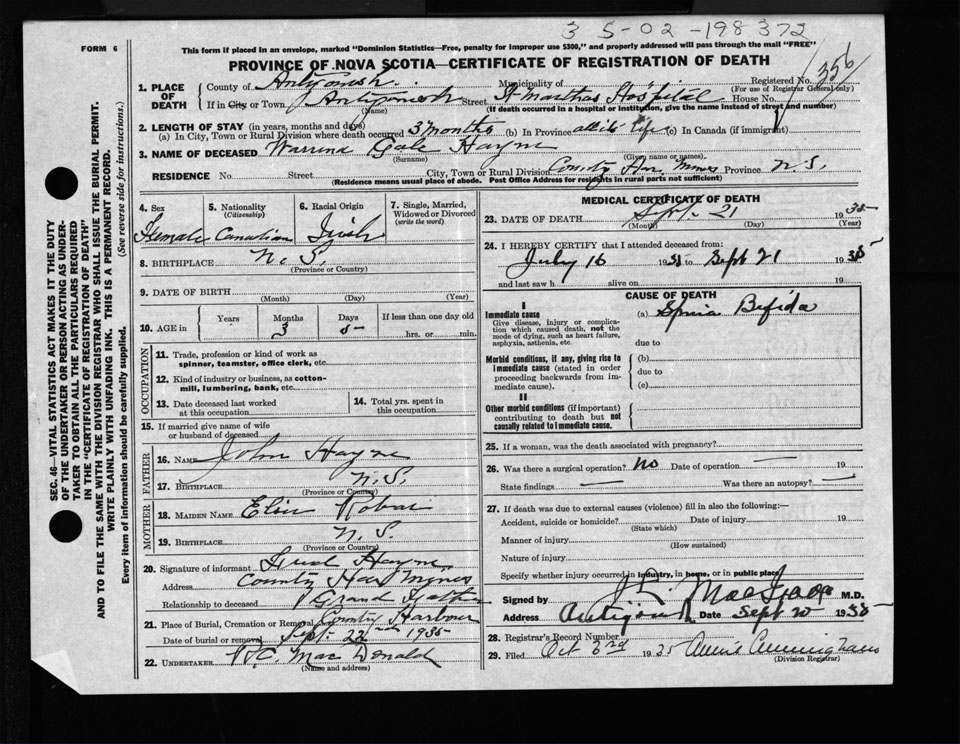 3 5-02-198 372
FORM 6
This form if placed in an envelope, marked "Dominion Statistics—Free, penalty for improper use $300," and properly addressed will pass through the mail "FREE"
PROVINCE OF NOVA SCOTIA—CERTIFICATE OF REGISTRATION OF DEATH
1. PLACE OF DEATH
County of Antigonish Municipality of Registered No. 356
(For use of Registrar General only)
If in City or Town Antigonish Street St Marthas Hospital House No.
(Name) (If death occurred in a hospital or institution, give the name instead of street and number)
2. LENGTH OF STAY (in years, months and days)
(a) In City, Town or Rural Division where death occurred 3 Months (b) In Province all its life (c) In Canada (if immigrant)
3. NAME OF DECEASED Gale Hayne
(Surname) (Given name or names)
RESIDENCE No. Street City, Town or Rural Division County Har. Mines Province N.S.
(Residence means usual place of abode. Post Office Address for residents in rural parts not sufficient)
4. Sex Female
5. Nationality (Citizenship) Canadian
6. Racial Origin Irish
7. Single, Married, Widowed or Divorced (write the word)
8. BIRTHPLACE N.S.
(Province or Country)
9. DATE OF BIRTH
(Month) (Day) (Year)
10. AGE in Years Months 3 Days 5 If less than one day old hrs. or min.
OCCUPATION
11. Trade, profession or kind of work as spinner, teamster, office clerk, etc.
12. Kind of industry or business, as cotton-mill, lumbering, bank, etc.
13. Date deceased last worked at this occupation
14. Total yrs. spent in this occupation
15. If married give name of wife or husband of deceased
FATHER
16. NAME John Hayne
17. BIRTHPLACE N.S.
(Province or Country)
MOTHER
18. MAIDEN NAME
19. BIRTHPLACE N.S.
(Province or Country)
20. Signature of informant Hayne
Address County Har Mines
Relationship to deceased Grand Father
21. Place of Burial, Cremation or Removal County Harbour
Date of burial or removal Sept. 22nd 1935
22. UNDERTAKER MacDonald
(Name and address)
MEDICAL CERTIFICATE OF DEATH
23. DATE OF DEATH Sept. 21 1935
(Month) (Day) (Year)
24. I HEREBY CERTIFY that I attended deceased from:
July 16 1935 to Sept 21 1935
and last saw h alive on 19
CAUSE OF DEATH
I
Immediate cause (a) Spina Bifida
Give disease, injury or complication which caused death, not the mode of dying, such as heart failure, asphyxia, asthenia, etc.
due to
Morbid conditions, if any, giving rise to immediate cause (stated in order proceeding backwards from immediate cause).
(b)
due to
(c)
II
Other morbid conditions (if important) contributing to death but not causally related to immediate cause.
25. If a woman, was the death associated with pregnancy?
26. Was there a surgical operation? No Date of operation — 19
State findings — Was there an autopsy? —
27. If death was due to external causes (violence) fill in also the following:—
Accident, suicide or homicide? Date of injury 19
(State which)
Manner of injury
(How sustained)
Nature of injury
Specify whether injury occurred in industry, in home, or in public place
Signed by M.D.
Address Antigonish Date Sept 20 1935
28. Registrar's Record Number
29. Filed Oct 3rd 1935 Annie Cunningham
(Division Registrar)
SEC. 46—VITAL STATISTICS ACT MAKES IT THE DUTY
OF THE UNDERTAKER OR PERSON ACTING AS UNDER-
TAKER TO OBTAIN ALL THE PARTICULARS REQUIRED
IN THE "CERTIFICATE OF REGISTRATION OF DEATH"
AND TO FILE THE SAME WITH THE DIVISION REGISTRAR WHO SHALL ISSUE THE BURIAL PERMIT.
WRITE PLAINLY WITH UNFADING INK. THIS IS A PERMANENT RECORD.
Every item of information should be carefully supplied. (See reverse side for instructions.)